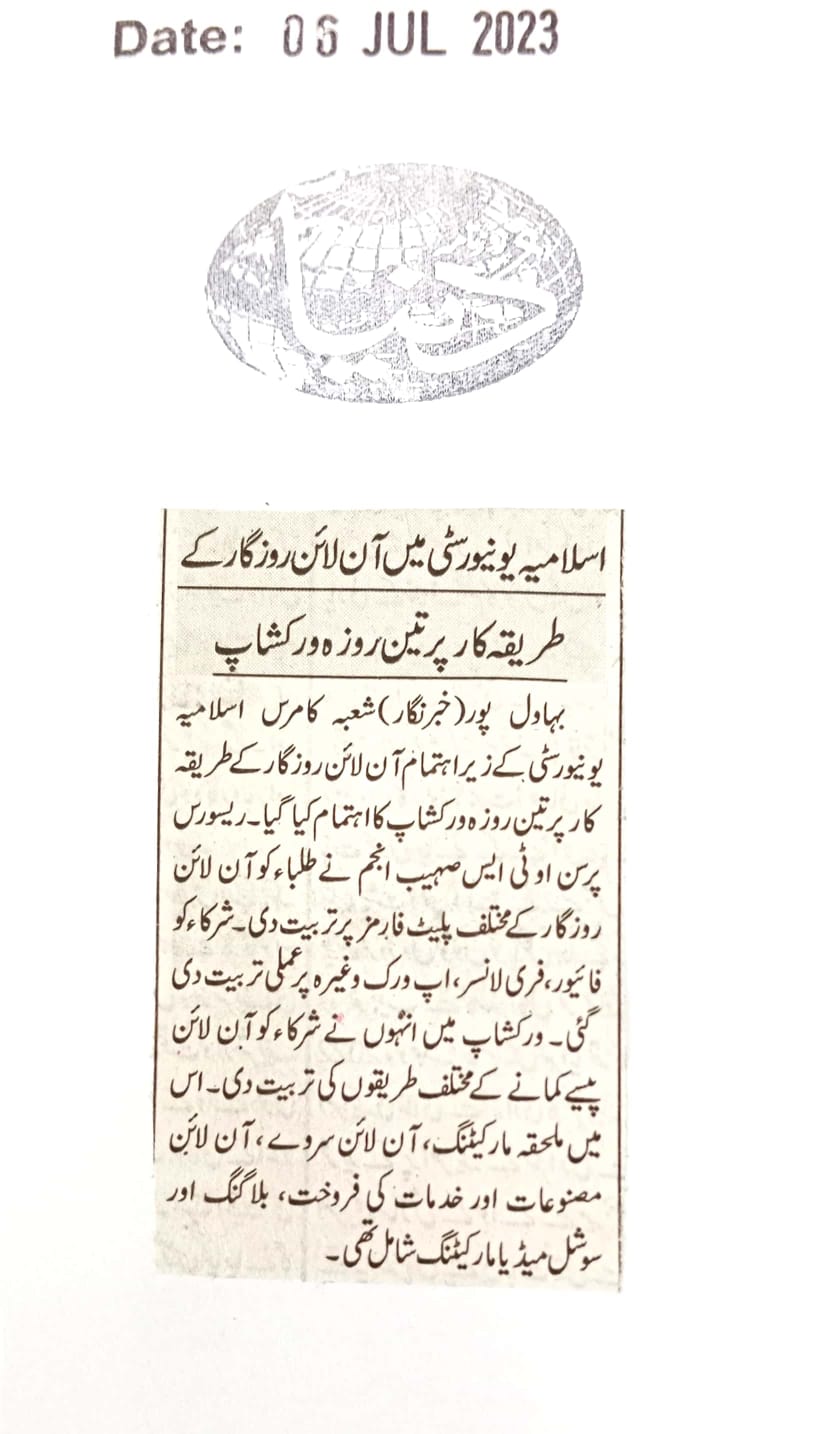 Date: 06 JUL 2023
دنیا
اسلامیہ یونیورسٹی میں آن لائن روزگار کے
طریقہ کار پر تین روزہ ورکشاپ
بہاول پور (خبرنگار) شعبہ کامرس اسلامیہ
یونیورسٹی کے زیر اہتمام آن لائن روزگار کے طریقہ
کار پر تین روزہ ورکشاپ کا اہتمام کیا گیا۔ ریسورس
پرسن او ٹی ایس صہیب انجم نے طلباء کو آن لائن
روزگار کے مختلف پلیٹ فارمز پر تربیت دی۔ شرکاء کو
فائیور، فری لانسر، اپ ورک وغیرہ پر عملی تربیت دی
گئی۔ ورکشاپ میں انہوں نے شرکاء کو آن لائن
پیسے کمانے کے مختلف طریقوں کی تربیت دی۔ اس
میں ملحقہ مارکیٹنگ، آن لائن سروے، آن لائن
مصنوعات اور خدمات کی فروخت، بلاگنگ اور
سوشل میڈیا مارکیٹنگ شامل تھی۔